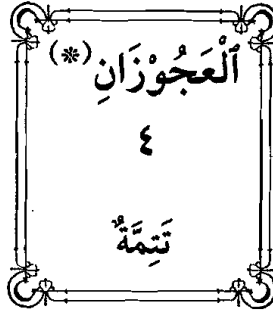 ٱلْعَجُوْزَانِ (*)
٤
تَتِمَّةٌ